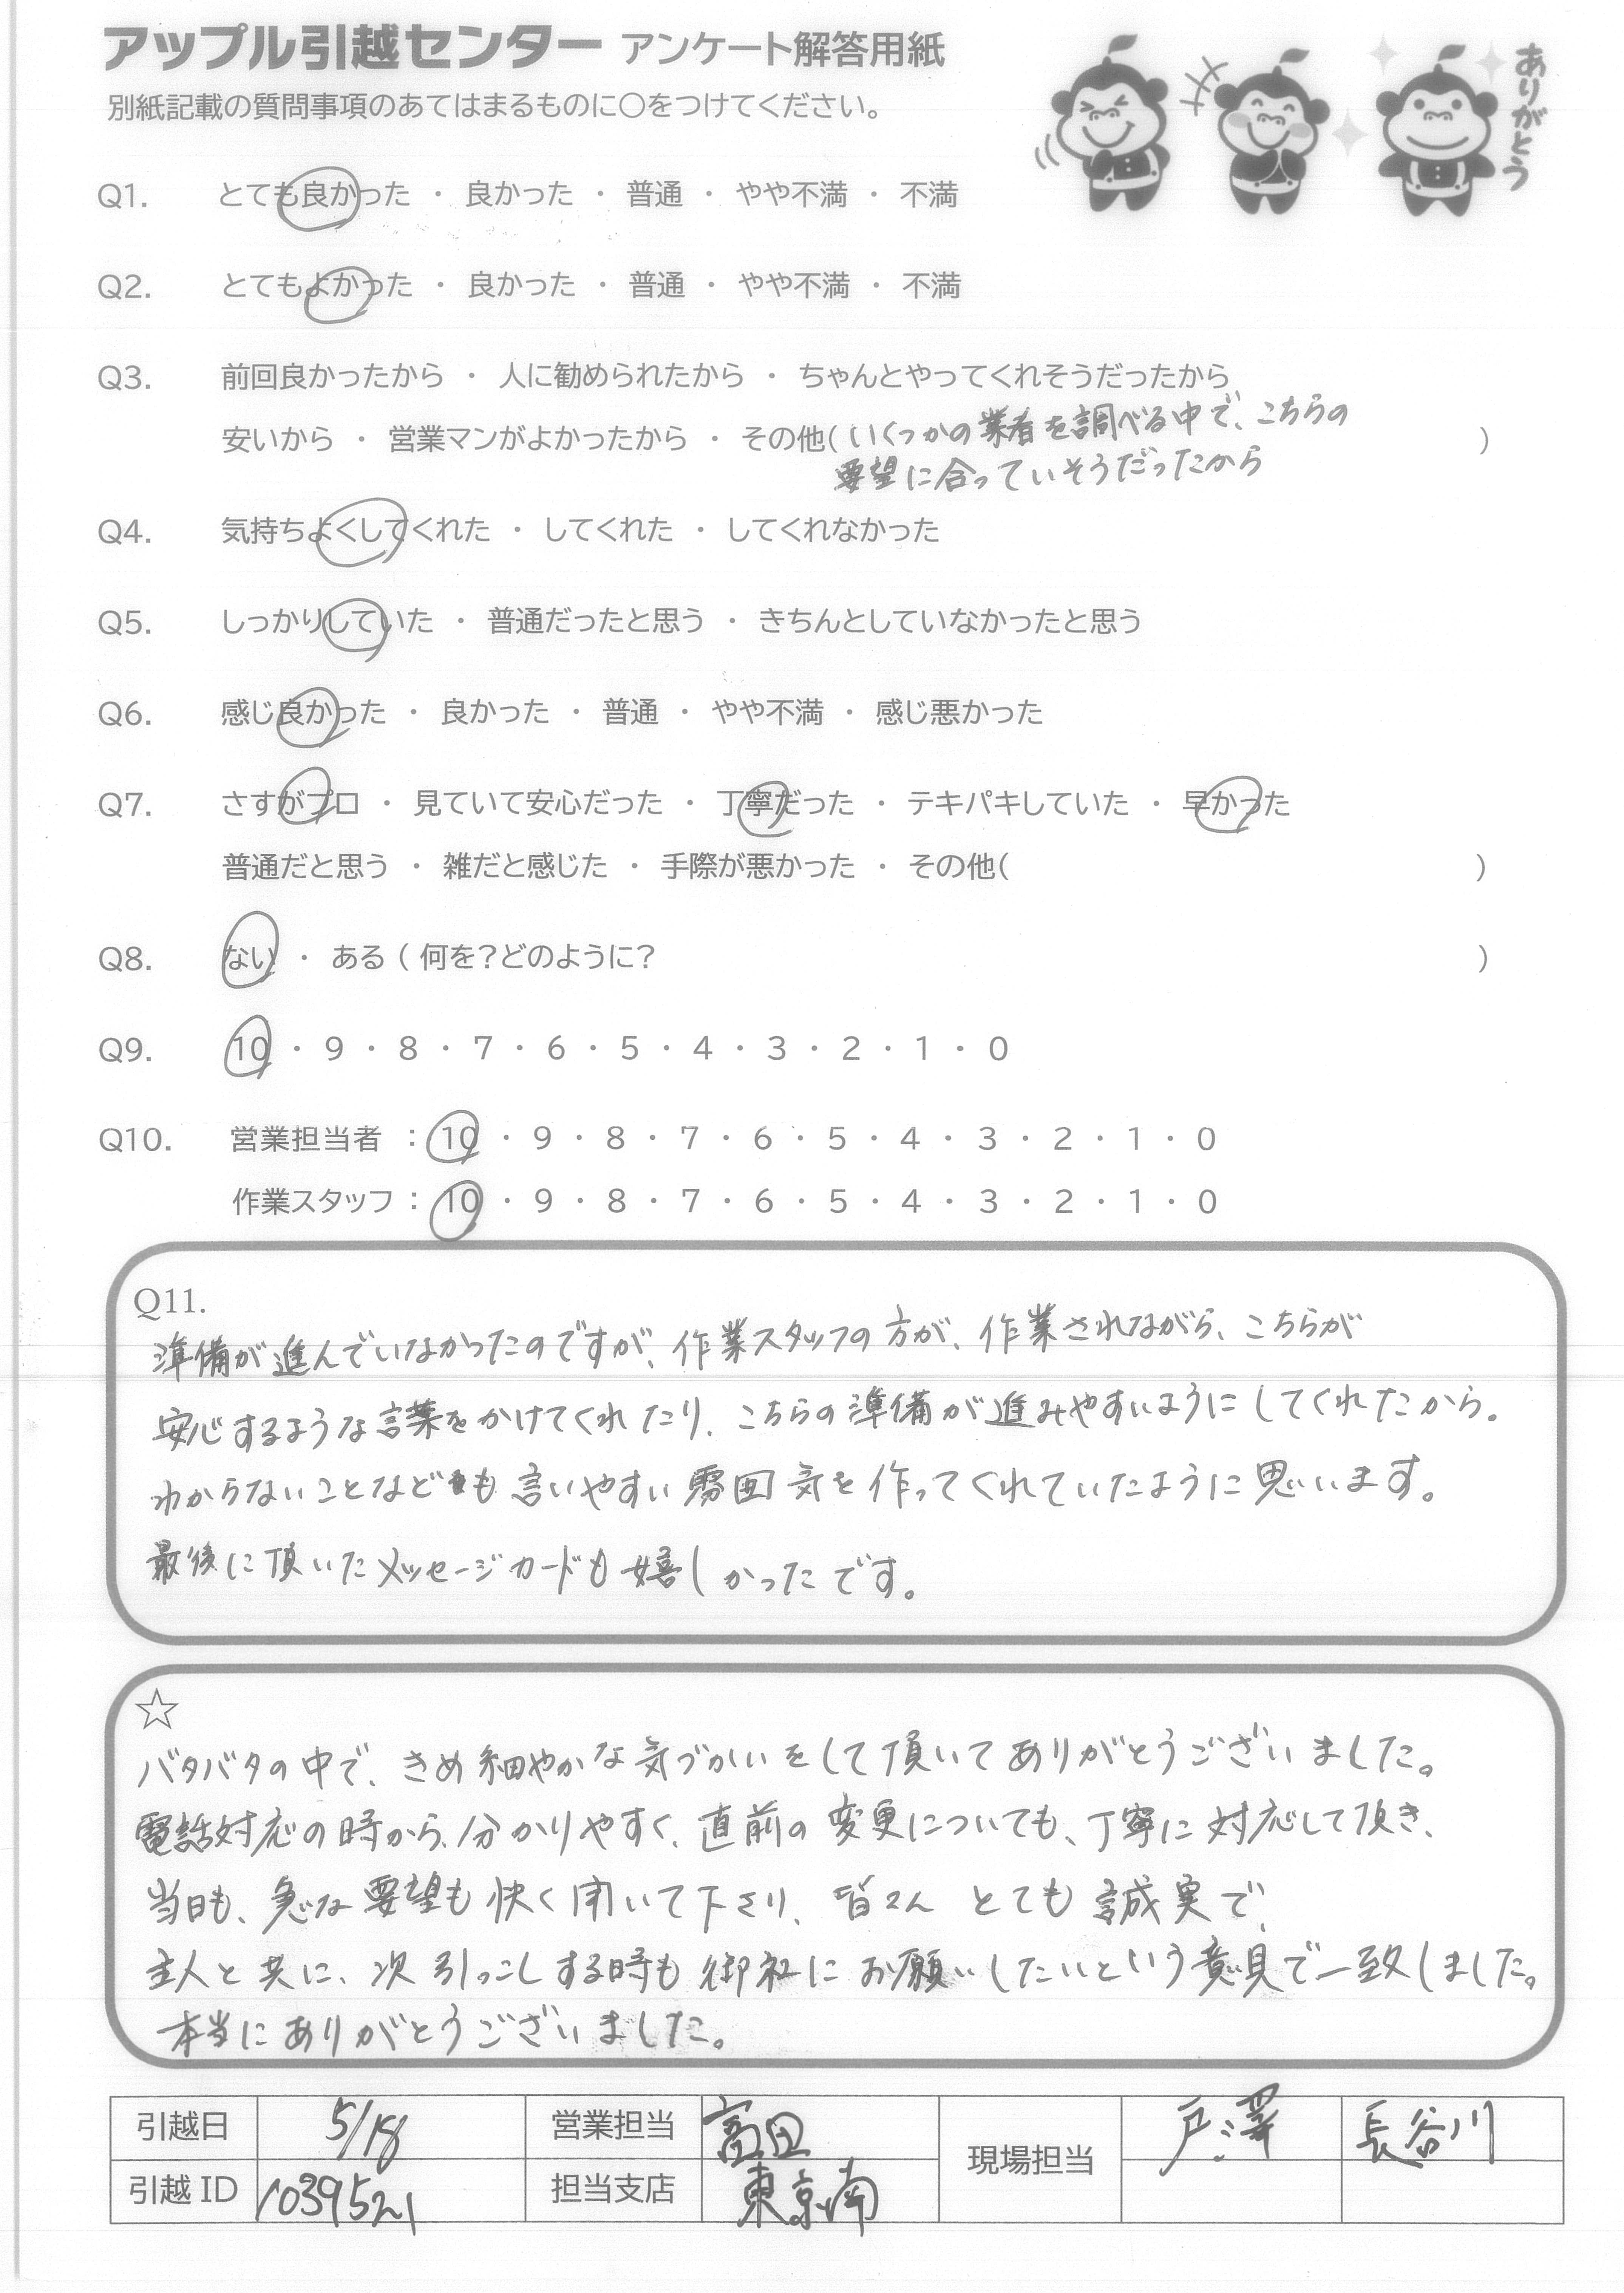 アップル引越センター アンケート解答用紙
別紙記載の質問事項のあてはまるものに○をつけてください。
ありがとう
Q1. とても良かった ・ 良かった ・ 普通 ・ やや不満 ・ 不満
Q2. とてもよかった ・ 良かった ・ 普通 ・ やや不満 ・ 不満
Q3. 前回良かったから ・ 人に勧められたから ・ ちゃんとやってくれそうだったから
安いから ・ 営業マンがよかったから ・ その他( いくつかの業者を調べる中で、こちらの )
要望に合っていそうだったから
Q4. 気持ちよくしてくれた ・ してくれた ・ してくれなかった
Q5. しっかりしていた ・ 普通だったと思う ・ きちんとしていなかったと思う
Q6. 感じ良かった ・ 良かった ・ 普通 ・ やや不満 ・ 感じ悪かった
Q7. さすがプロ ・ 見ていて安心だった ・ 丁寧だった ・ テキパキしていた ・ 早かった
普通だと思う ・ 雑だと感じた ・ 手際が悪かった ・ その他( )
Q8. ない ・ ある ( 何を？どのように？ )
Q9. 10 ・ 9 ・ 8 ・ 7 ・ 6 ・ 5 ・ 4 ・ 3 ・ 2 ・ 1 ・ 0
Q10. 営業担当者 ： 10 ・ 9 ・ 8 ・ 7 ・ 6 ・ 5 ・ 4 ・ 3 ・ 2 ・ 1 ・ 0
作業スタッフ： 10 ・ 9 ・ 8 ・ 7 ・ 6 ・ 5 ・ 4 ・ 3 ・ 2 ・ 1 ・ 0
Q11.
準備が進んでいなかったのですが、作業スタッフの方が、作業されながら、こちらが
安心するような言葉をかけてくれたり、こちらの準備が進みやすいようにしてくれたから。
わからないことなども言いやすい雰囲気を作ってくれていたように思います。
最後に頂いたメッセージカードも嬉しかったです。
☆
バタバタの中で、きめ細やかな気づかいをして頂いてありがとうございました。
電話対応の時から、分かりやすく、直前の変更についても、丁寧に対応して頂き、
当日も、急な要望も快く聞いて下さり、皆さん とても誠実で、
主人と共に、次引っこしする時も御社にお願いしたいという意見で一致しました。
本当にありがとうございました。
引越日 5/18 営業担当 高田 現場担当 戸澤 長谷川
引越ID 1039521 担当支店 東京南